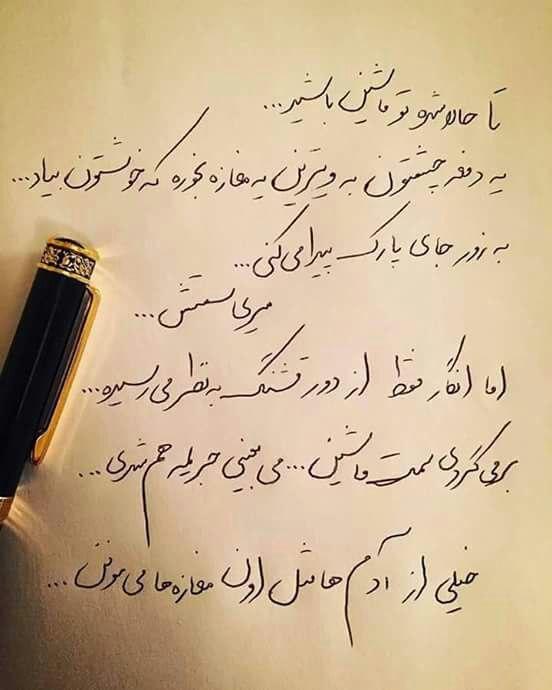 تا حالا شده تو ماشین باشید...
یه دفعه چشمتون به ویترین یه مغازه بخوره که خوشتون بیاد...
به زور جای پارک پیدا می کنی...
میری سمتش...
اما انگار فقط از دور قشنگ به نظر می رسیده...
برمی گردی سمت ماشین... می بینی جریمه هم شدی...
خیلی از آدم ها مثل اون مغازه ها می مونن...